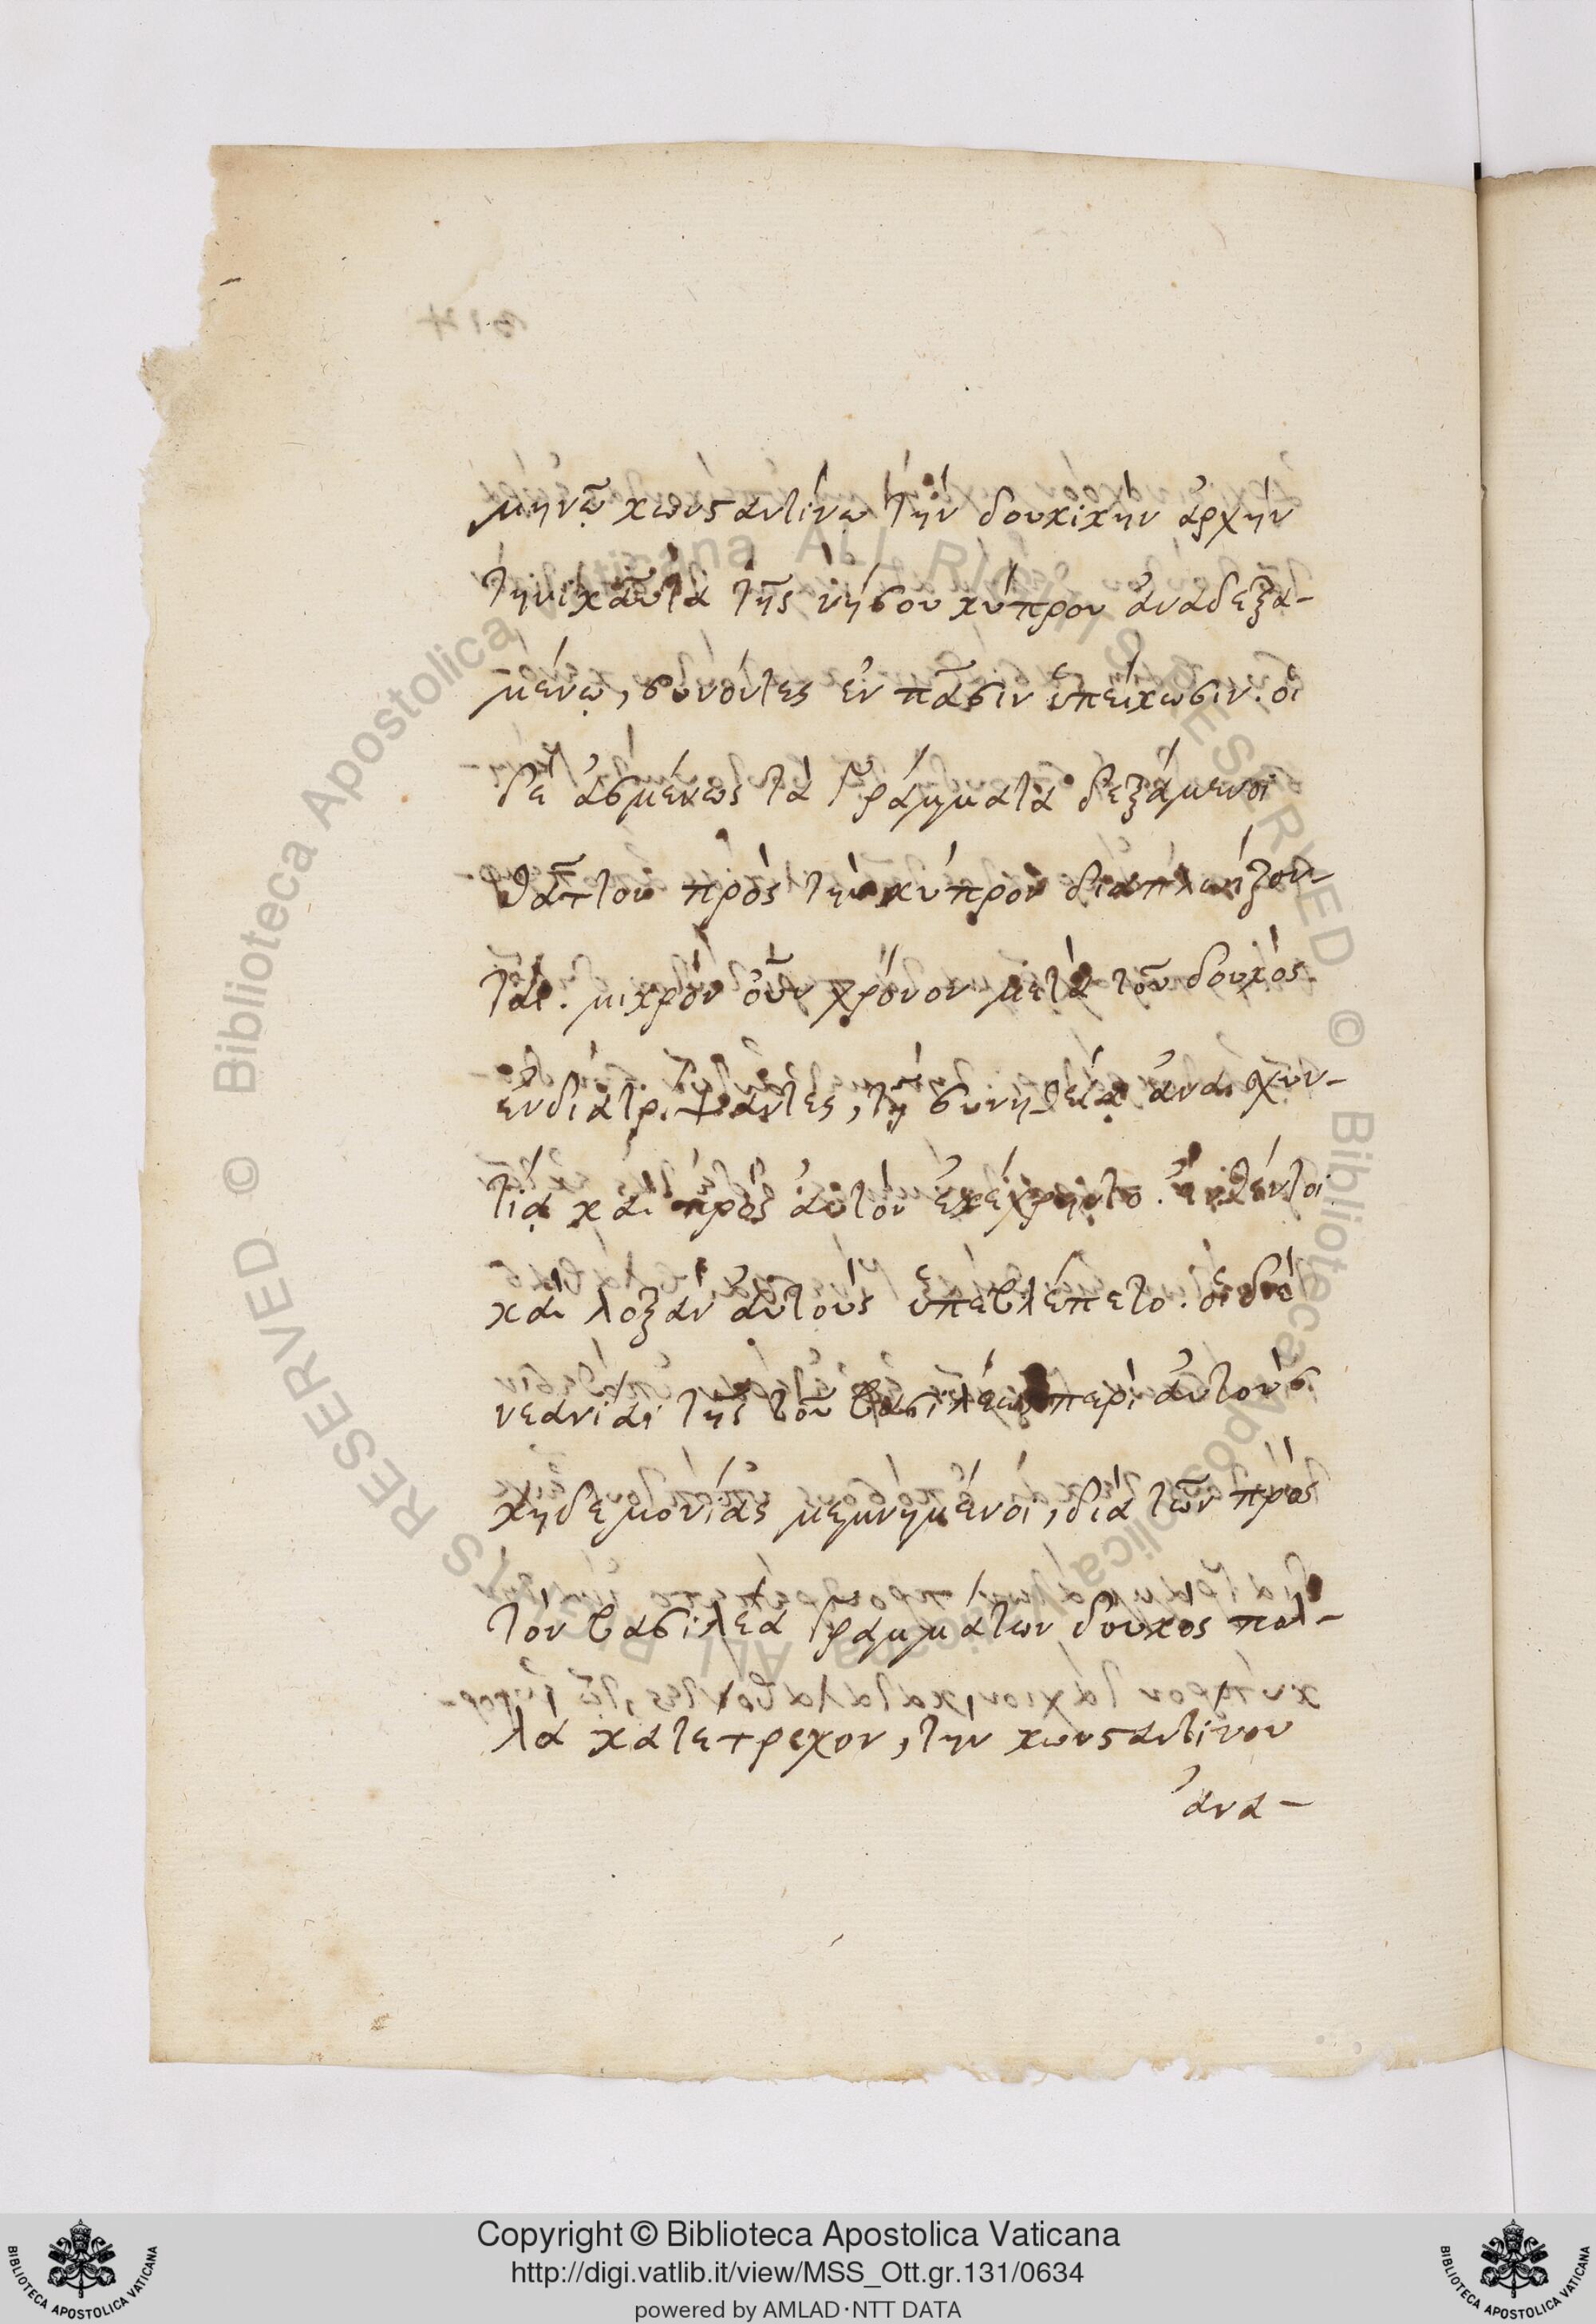 μηνῷ κωνσταντίνῳ τὴν δουκικὴν ἀρχὴν
τηνικᾶυτα τῆς νήσου κύπρου ἀναδεξα-
μένῳ, συνόντες ἐν πᾶσιν ὑπείκωσιν. οἱ
δὲ ἀσμένως τὰ γράμματα δεξάμενοι
θᾶττον πρὸς τὴν κύπρον διαπλωΐζον-
ται. μικρὸν οὖν χρόνον μετὰ τοῦ δουκὸς
ἐνδιατρίψαντες, τῇ συνηθείᾳ ἀναισχυν-
τίᾳ καὶ πρὸς ἀυτὸν ἐκέχρηντο. ἔνθέντοι
καὶ λοξὰν ἀυτοὺς ὑπεβλέπετο. οἱ δὲ
νεανίαι τῆς τοῦ βασιλέως περὶ ἀυτοὺς
κηδεμονίας μεμνημένοι, διὰ τῶν πρὸς
τὸν βασιλέα γραμμάτων δουκὸς πολ-
λὰ κατέτρεχον, τὴν κωνσταντίνου
ἀνα-
Copyright © Biblioteca Apostolica Vaticana
http://digi.vatlib.it/view/MSS_Ott.gr.131/0634
powered by AMLAD·NTT DATA
BIBLIOTECA APOSTOLICA VATICANA
BIBLIOTECA APOSTOLICA VATICANA